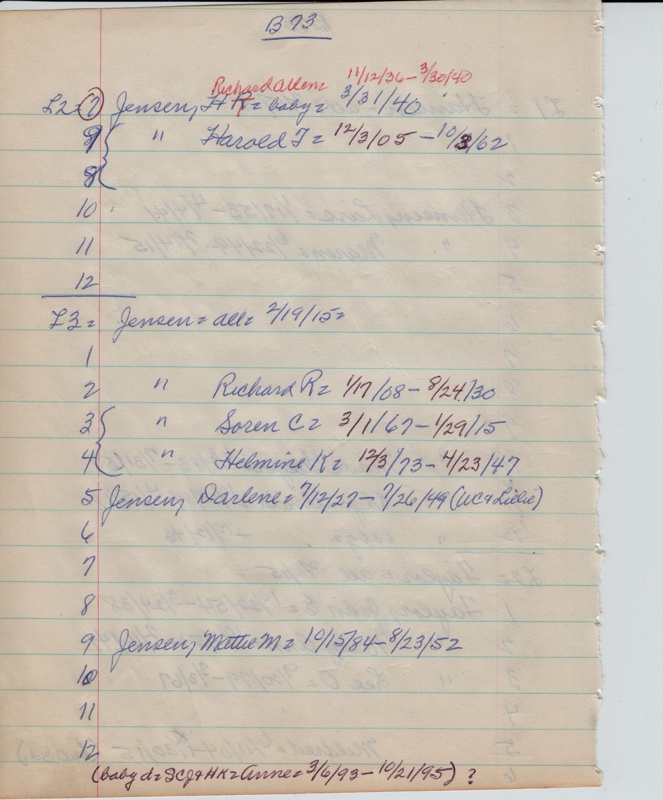 B73
Richard Allen = 11/12/36 – 3/30/40
L2 = 7 Jensen, H R = baby = 3/31/40
9 { " Harold T = 12/3/05 – 10/3/62
8
10
11
12
L3 = Jensen = all = 2/19/15 =
1
2 " Richard R = 1/17/08 – 8/24/30
3 { " Soren C = 3/1/67 – 1/29/15
4 " Helmine K = 12/3/73 – 4/23/47
5 Jensen, Darlene = 7/12/27 – 7/26/49 (WC + Lillie)
6
7
8
9 Jensen, Mattie M = 10/15/84 – 8/23/52
10
11
12
(baby d = SCJ + HK = Anne = 3/6/93 – 10/21/95) ?